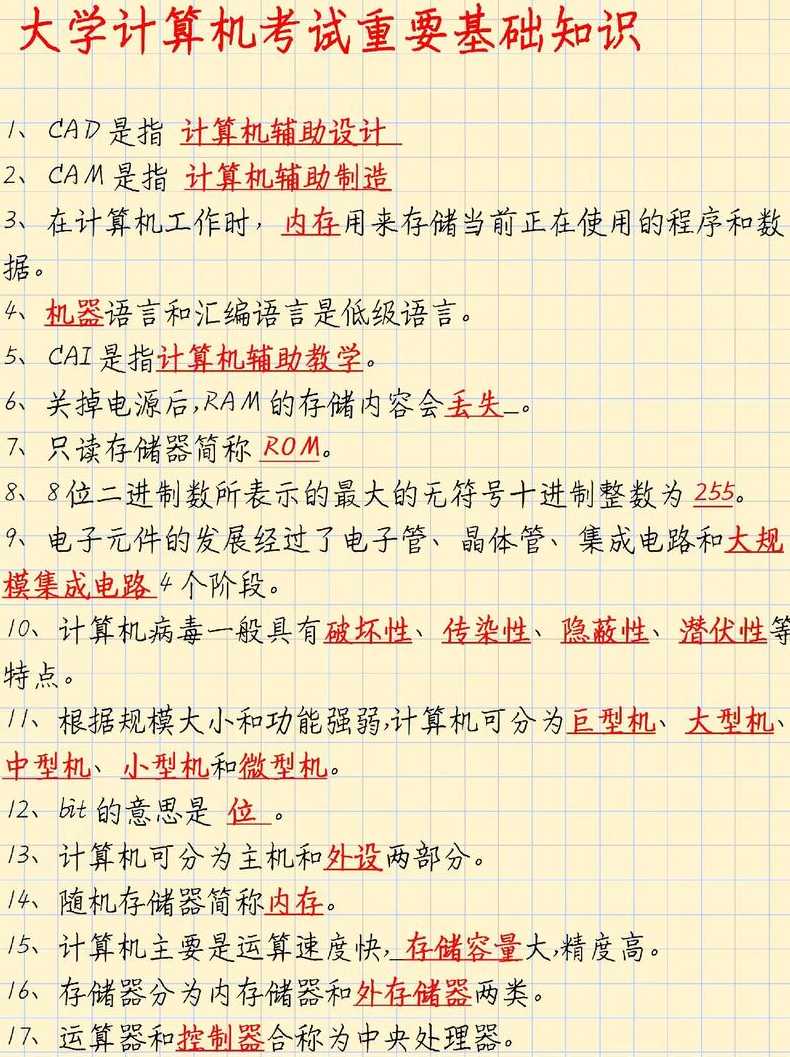 大学计算机考试重要基础知识
1、CAD是指 计算机辅助设计
2、CAM是指 计算机辅助制造
3、在计算机工作时，内存用来存储当前正在使用的程序和数
据。
4、机器语言和汇编语言是低级语言。
5、CAI是指计算机辅助教学。
6、关掉电源后,RAM的存储内容会丢失_。
7、只读存储器简称 ROM。
8、8位二进制数所表示的最大的无符号十进制整数为 255。
9、电子元件的发展经过了电子管、晶体管、集成电路和大规
模集成电路 4个阶段。
10、计算机病毒一般具有破坏性、传染性、隐蔽性、潜伏性等
特点。
11、根据规模大小和功能强弱,计算机可分为巨型机、大型机、
中型机、小型机和微型机。
12、bit的意思是 位 。
13、计算机可分为主机和外设两部分。
14、随机存储器简称内存。
15、计算机主要是运算速度快, 存储容量大,精度高。
16、存储器分为内存储器和外存储器两类。
17、运算器和控制器合称为中央处理器。